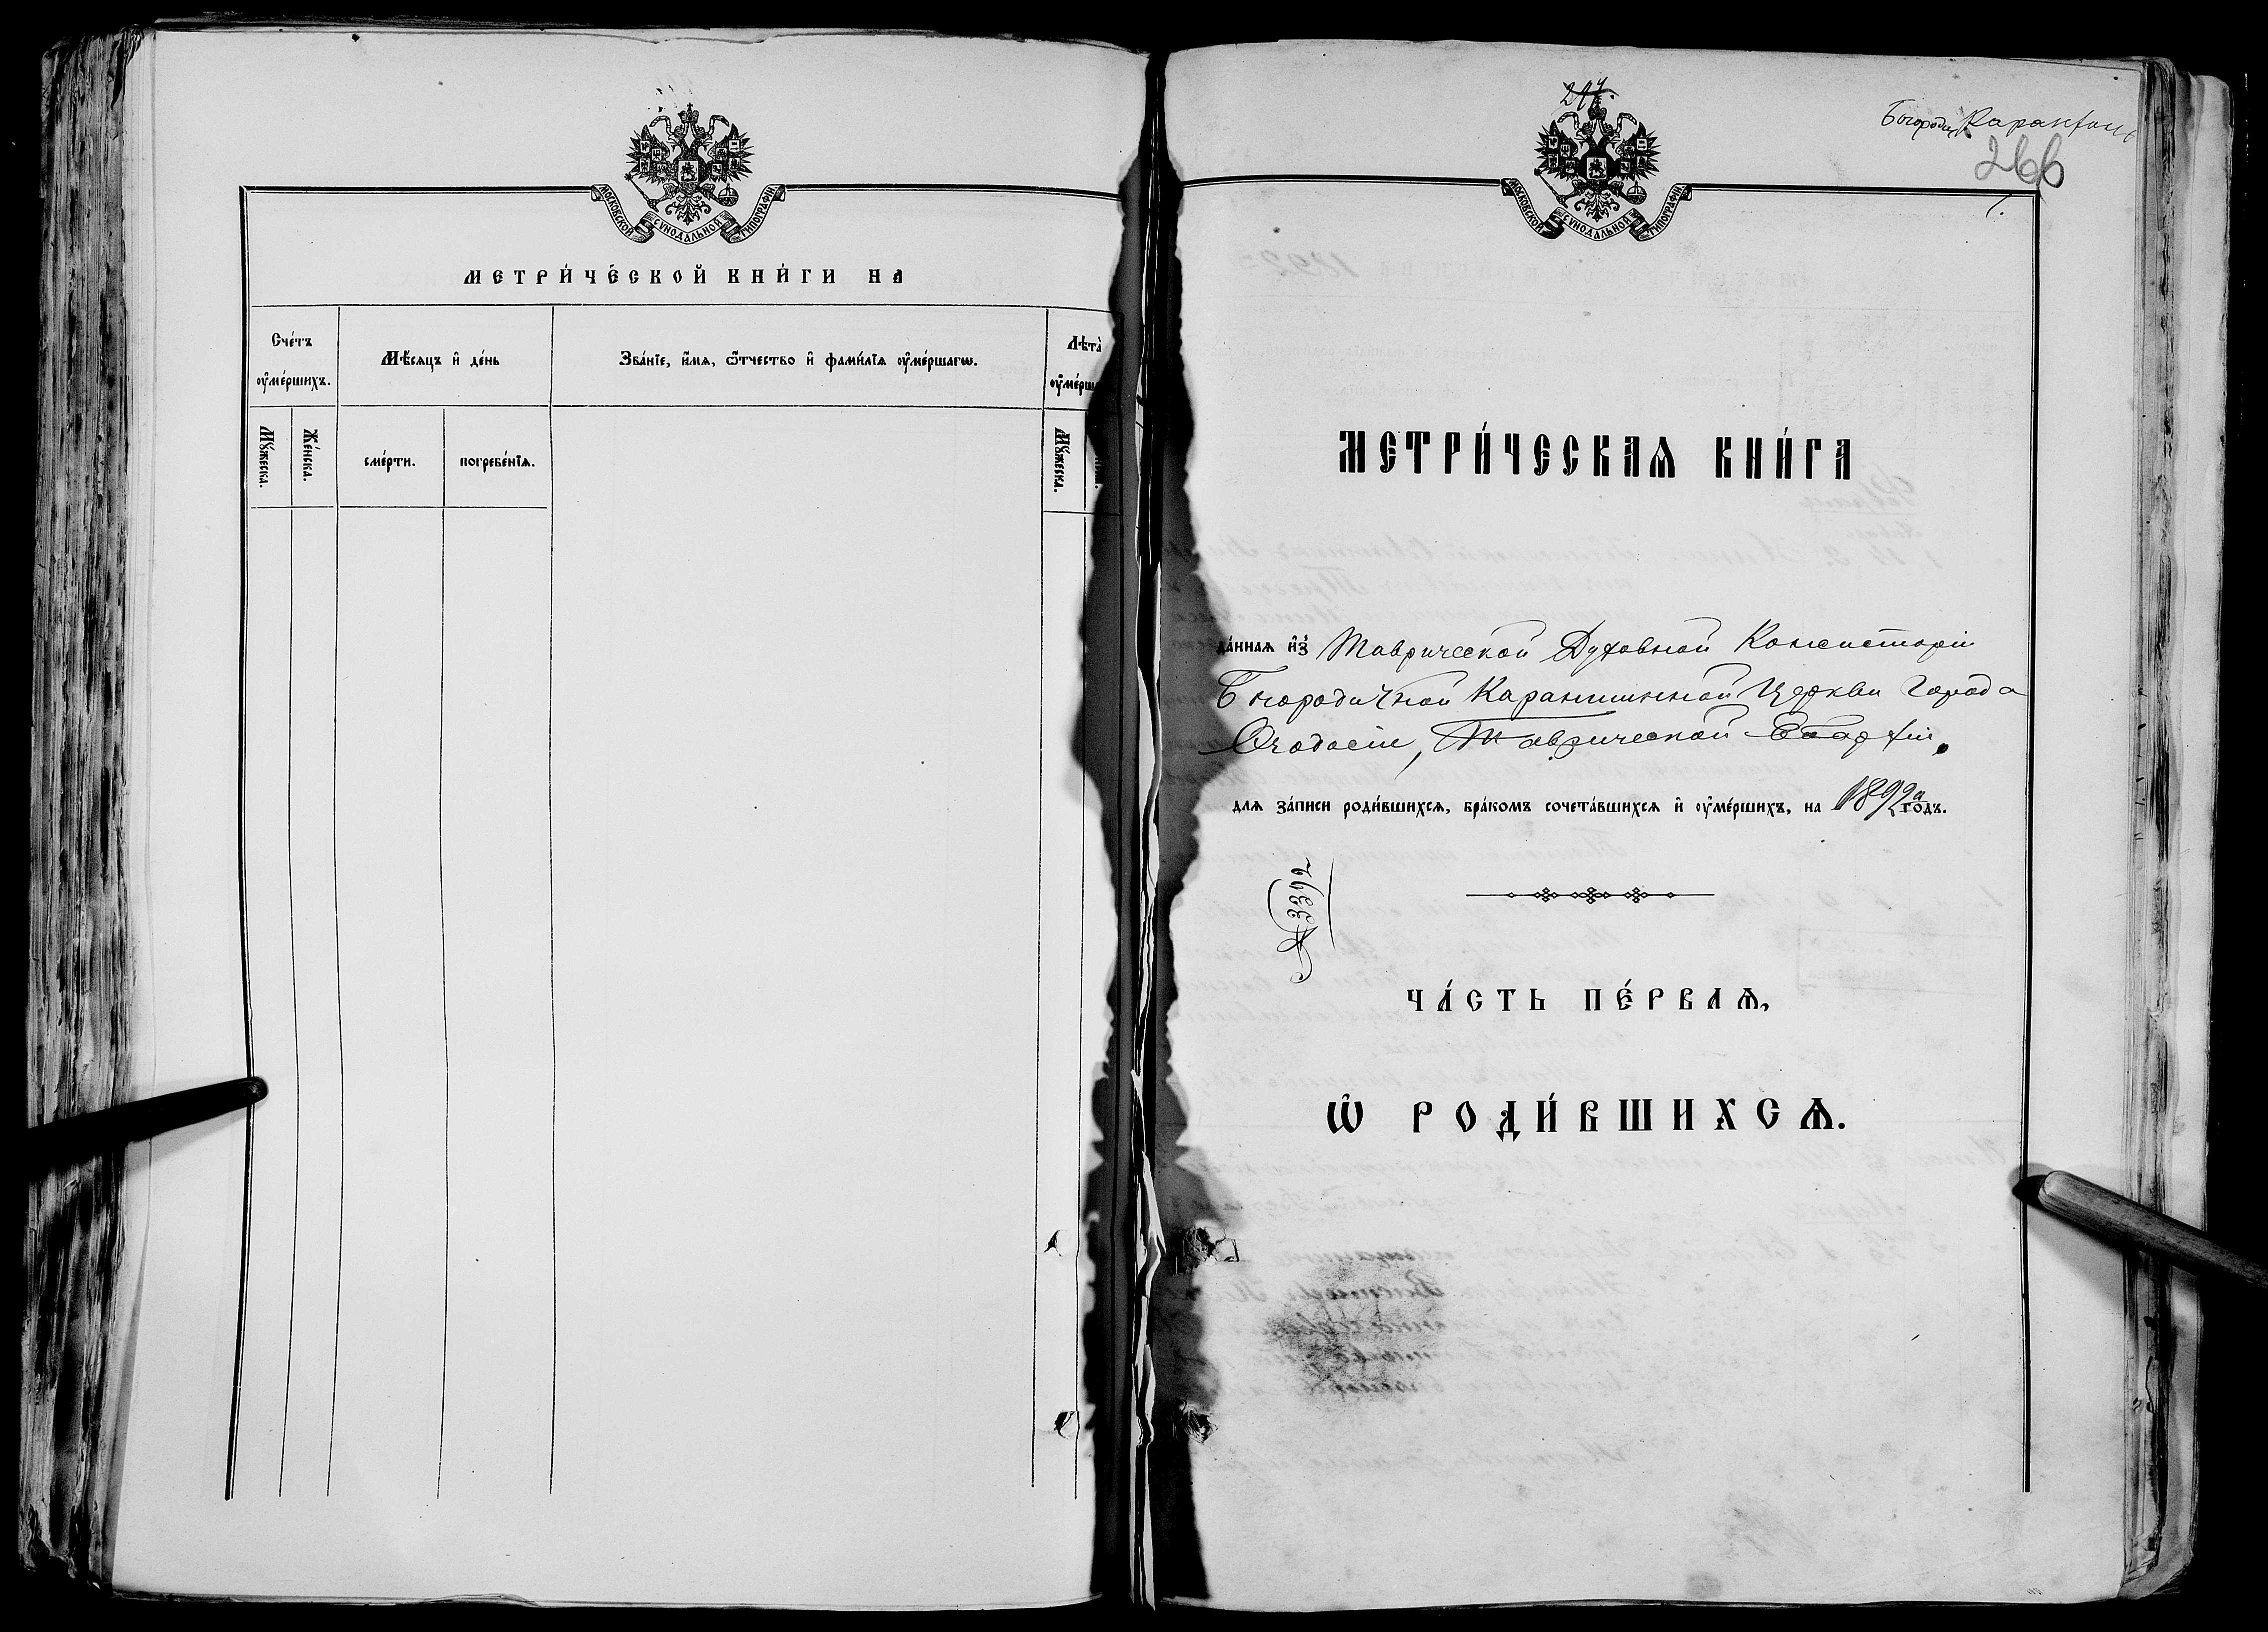 МОСКОВСКОЙ СѴНОДАЛЬНОЙ ТИПОГРАФІИ
МЕТРИ́ЧЕСКОЙ КНИ́ГИ НА
Сче́тъ ᲂу҆ме́ршихъ.
Мѣ́сяцъ и҆ де́нь
Зва́нїе, и҆́мѧ, ѻ҆́тчество и҆ фами́лїѧ ᲂу҆ме́ршагѡ.
Лѣта̀
Мꙋ́жеска.
Же́нска.
сме́рти.
погребе́нїѧ.
Мꙋ́жеска.
Богородич. Карантин
266
1.
МОСКОВСКОЙ СѴНОДАЛЬНОЙ ТИПОГРАФІИ
МЕТРИ́ЧЕСКАѦ КНИ́ГА
да́ннаѧ и҆з̾ Таврической Духовной Консисторіи
Богородичной Карантинной Церкви города
Ѳеодосіи, Таврической Епархіи,
длѧ за́писи роди́вшихсѧ, бра́комъ сочета́вшихсѧ и҆ ᲂу҆ме́ршихъ, на 1892й го́дъ.
№ 3392
ЧА́СТЬ ПЕ́РВАѦ,
Ѡ҆ РОДИ́ВШИХСѦ.